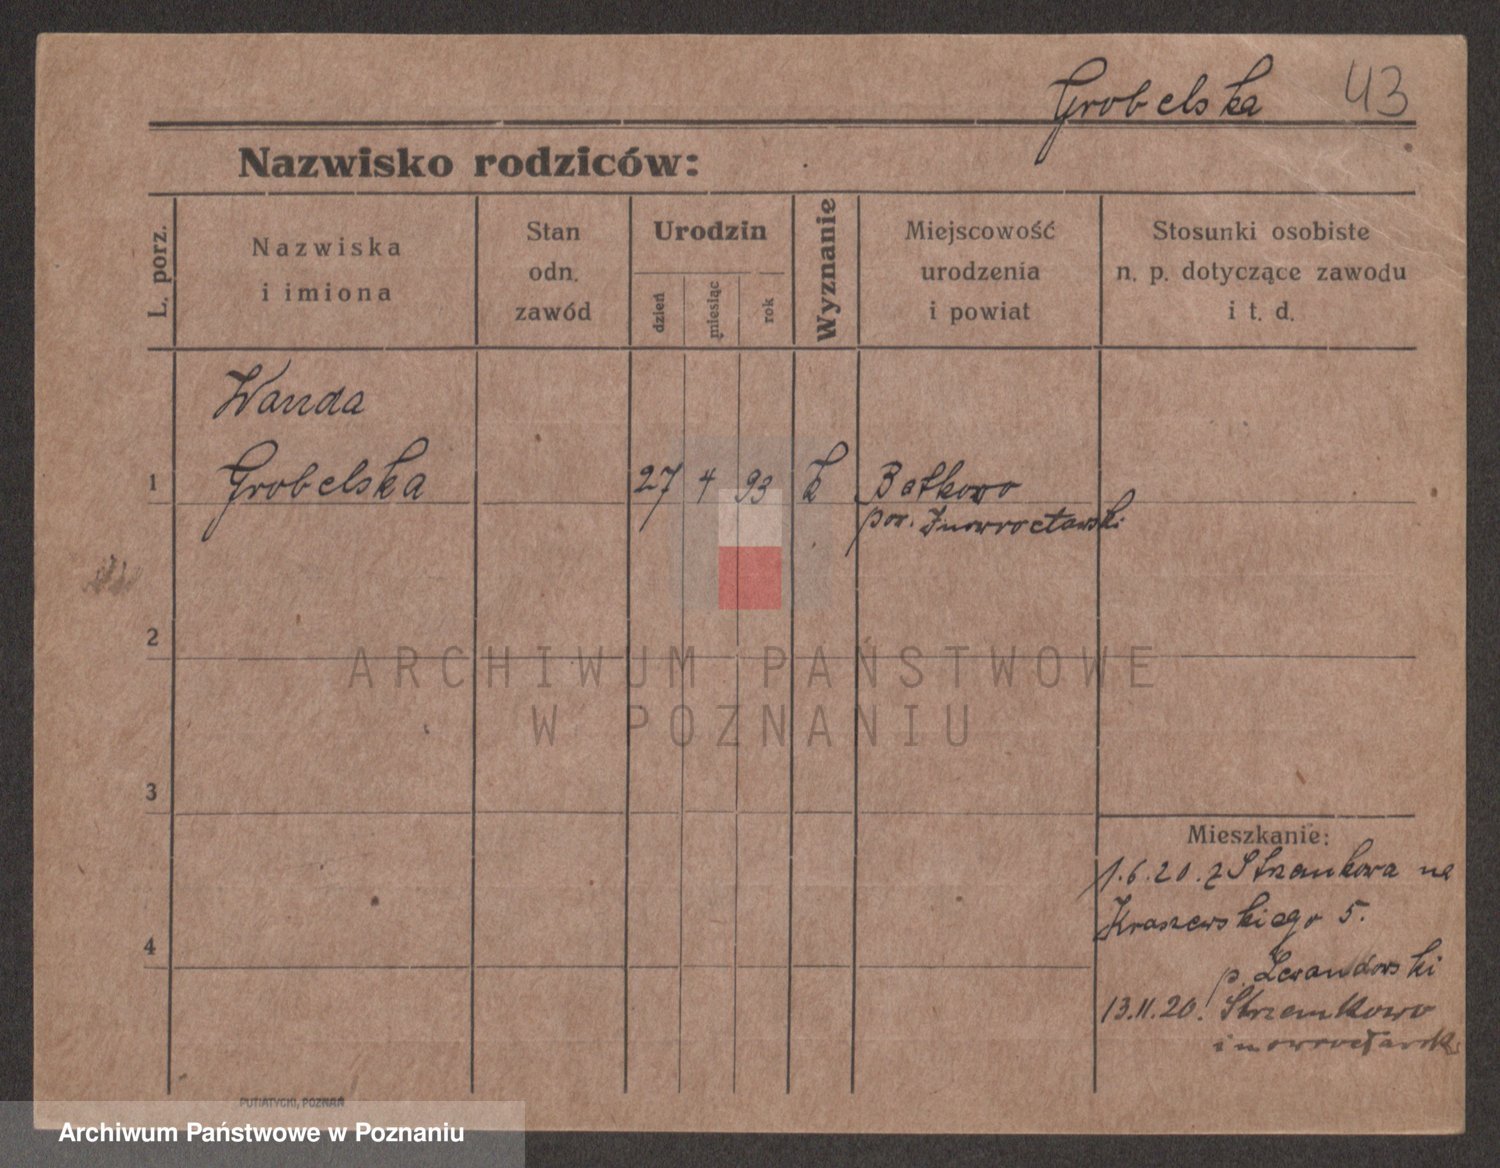 Grobelska 43
Nazwisko rodziców:
L. porz.
Nazwiska
i imiona
Stan
odn.
zawód
Urodzin
dzień
miesiąc
rok
Wyznanie
Miejscowość
urodzenia
i powiat
Stosunki osobiste
n. p. dotyczące zawodu
i t. d.
Wanda
1 Grobelska 27 4 93 k Batkowo
pow. Inowrocławski
2
3
4
Mieszkanie:
1.6.20. z Strzemkowa na
Kraszewskiego 5.
p. Lewandowski
13.11.20. Strzemkowo
ARCHIWUM PAŃSTWOWE
W POZNANIU
PUTIATYCKI, POZNAŃ
Archiwum Państwowe w Poznaniu